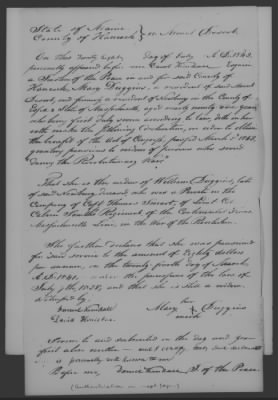 State of Maine
County of Hancock } ss. Mount Desert.
On this twenty eighth day of July A.D. 1843,
personally appeared before me Daniel Kimball Esquire
a Justice of the Peace in and for said County of
Hancock, Mary Duggins, a resident of said Mount
Desert, and formerly a resident of Newbury in the County of
Essex & State of Massachusetts, aged ninety years,
who being first duly sworn according to law, doth on her
oath make the following declaration, in order to obtain
the benefit of the Act of Congress, passed March 3d 1843,
granting pensions to widows of persons who served
during the Revolutionary War.
That she is the widow of William Duggins, late
of said Newbury deceased who was a Private in the
Company of Capt Thomas, of Lieut Col
Calvin Smiths Regiment of the Continental Army
Massachusetts Line, in the War of the Revolution.
She further declares that she was pensioned
for said service to the amount of Eighty dollars
per annum, on the twenty fourth day of March,
A.D. 1840, under the provisions of the law of
July 7th 1838, and that she is still a widow.
Attested by
Daniel Kimball
David
her
Mary X Duggins
mark
Sworn to and subscribed on the day and year
first above written
is personally well known to me
Before me, Daniel Kimball J. of the Peace.